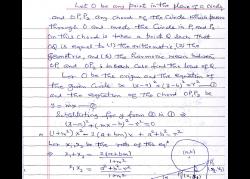 Let O be any point in the plane of a circle
and OP₁P₂ any chord of the circle which passes
through O and meets the circle in P₁ and P₂
On this chord is taken a point Q such that
OQ is equal to (1) the arithmetic (2) the
geometric, and (3) the harmonic mean between
OP₁ and OP₂ in each case find the locus of Q.
Let O be the origin and the equation of
the given circle is (x-a)²+(y-b)²=r² —①
and the equation of the chord OP₁P₂ be
y = mx —②
Substituting for y from ② in ① ⇒
(x-a)²+(mx-b)²-r²=0
⇒ (1+m²)x²-2(a+bm)x+a²+b²-r²
Let x₁, x₂ be the roots of the eqⁿ
⇒ x₁+x₂ = 2(a+bm)/1+m²
x₁x₂ = a²+b²-r²/1+m²
(a,b)